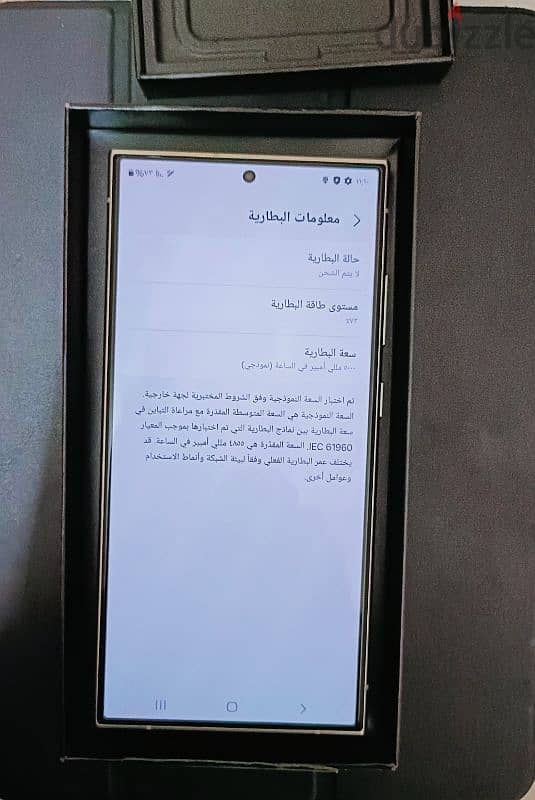 dubizzle
%٧٣
١١:١٠
معلومات البطارية
حالة البطارية
لا يتم الشحن
مستوى طاقة البطارية
٧٣٪
سعة البطارية
٥٠٠٠ مللي أمبير في الساعة (نموذجي)
تم اختبار السعة النموذجية وفق الشروط المختبرية لجهة خارجية.
السعة النموذجية هي السعة المتوسطة المقدرة مع مراعاة التباين في
سعة البطارية بين نماذج البطارية التي تم اختبارها بموجب المعيار
IEC 61960. السعة المقدّرة هي ٤٨٥٥ مللي أمبير في الساعة. قد
يختلف عمر البطارية الفعلي وفقاً لبيئة الشبكة وأنماط الاستخدام
وعوامل أخرى.